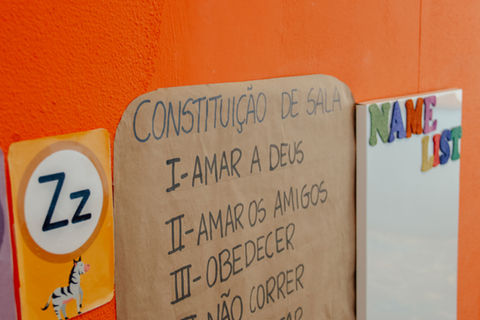 Zz
CONSTITUIÇÃO DE SALA
I-AMAR A DEUS
II-AMAR OS AMIGOS
III-OBEDECER
NÃO CORRER
NAME
LIST